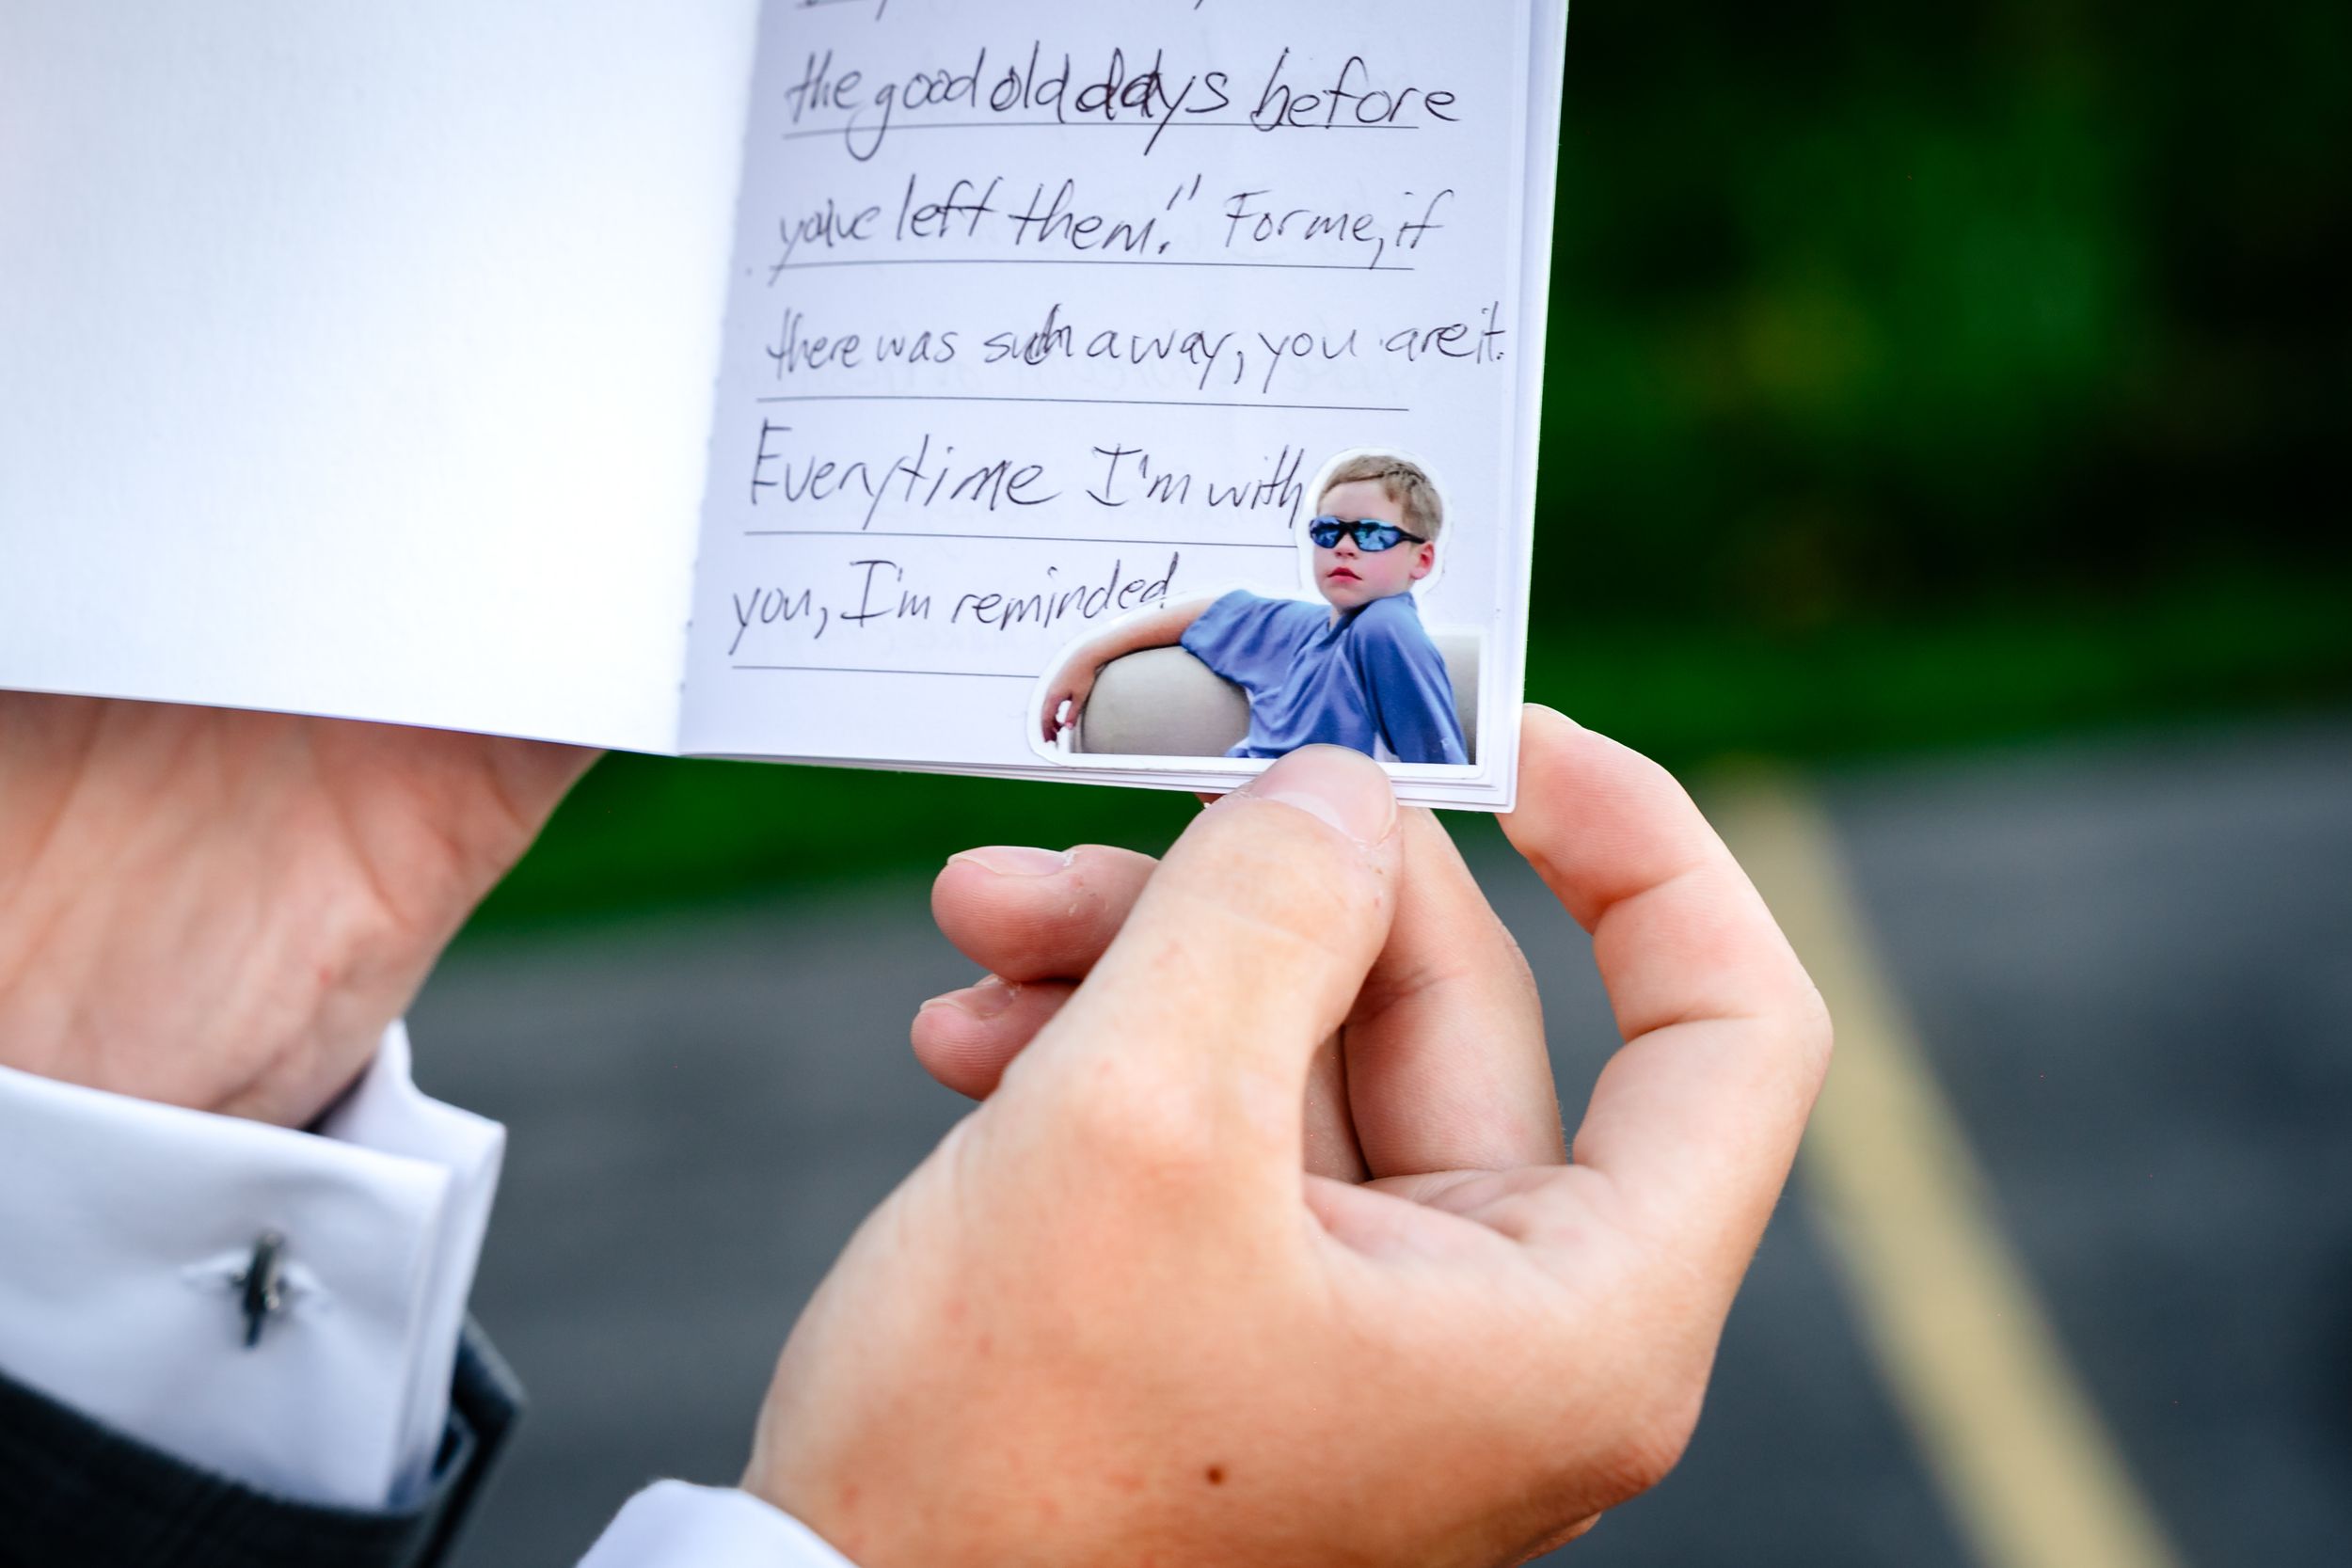 the good old days before
you've left them." For me, if
there was such a way, you are it.
Everytime I'm with
you, I'm reminded